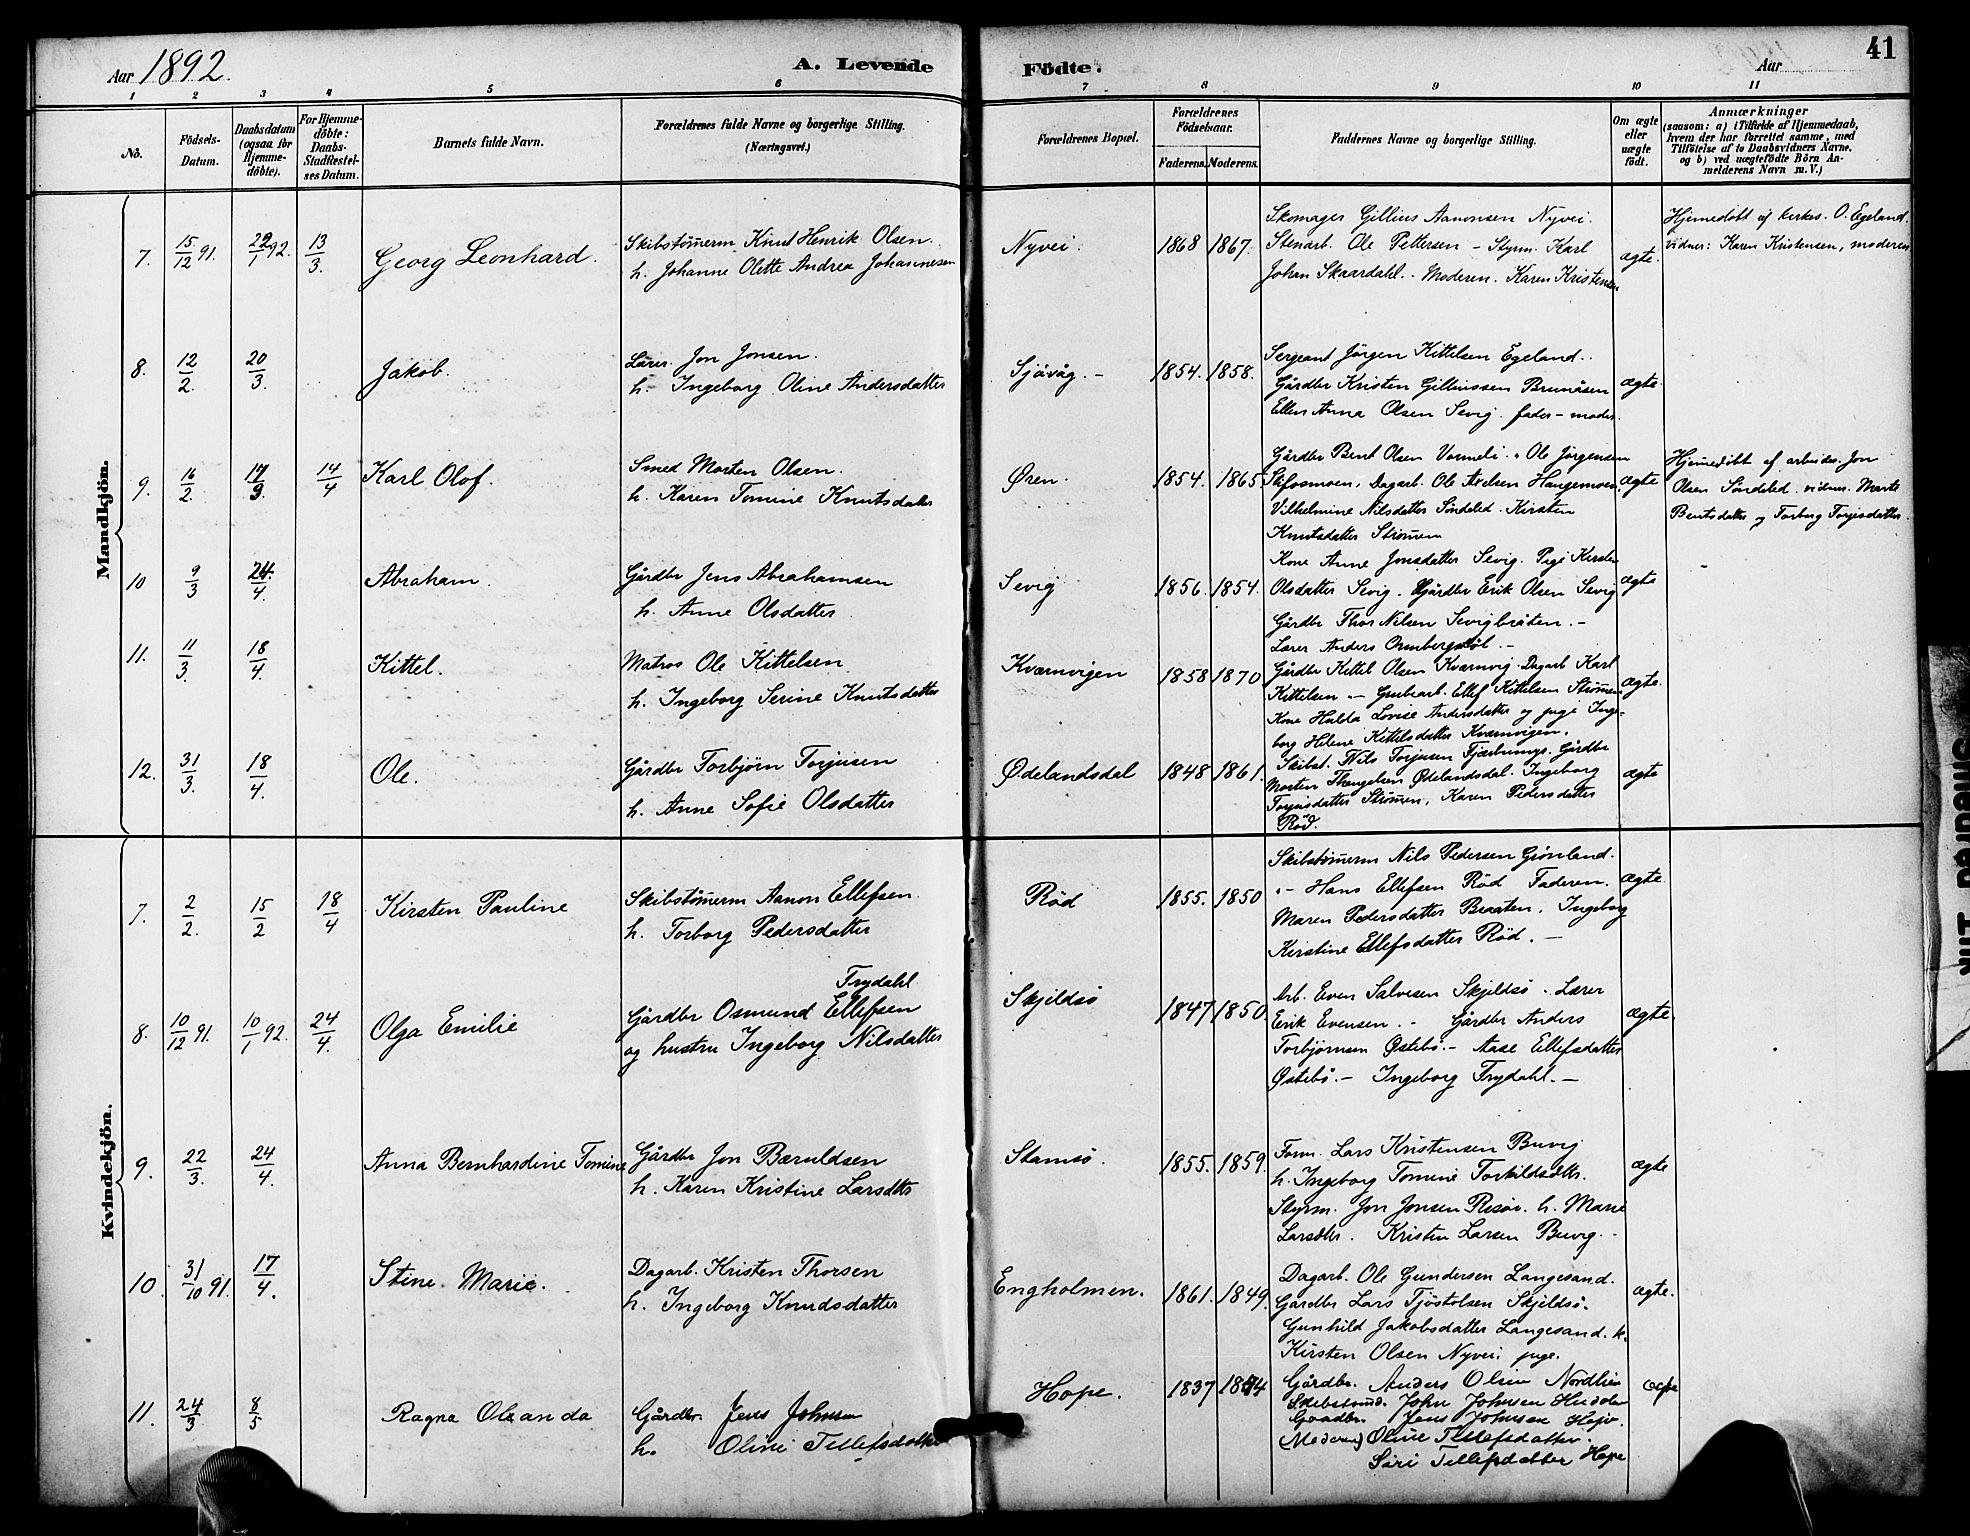 Aar 1892.
A. Levende Födte.
Aar
41
1 2 3 4 5 6 7 8 9 10 11
No.
Födsels-Datum.
Daabsdatum (ogsaa for Hjemme-döbte).
For Hjemme-döbte: Daabs-Stadfæstel-ses Datum.
Barnets fulde Navn.
Forældrenes fulde Navne og borgerlige Stilling. (Næringsvei.)
Forældrenes Bopæl.
Forældrenes Födselsaar.
Faderens. Moderens.
Faddernes Navne og borgerlige Stilling.
Om ægte eller uægte födt.
Anmærkninger
(saasom: a) i Tilfælde af Hjemmedaab, hvem der har forrettet samme, med Tilföielse af to Daabsvidners Navne, og b) ved uægtefödte Börn An-melderens Navn m. V.)
Mandkjön.
7. 15/12 91. 22/1 92. 13/3. Georg Leonhard.
Skibstömerm Knut Henrik Olsen.
h. Johanne Olette Andrea Johannesen
Nyvei. 1868 1867.
Skomager Gillius Aanonsen Nyvei.
Stenarb. Ole Pettersen – Styrm. Karl
Johan Skaardahl. – Moderen. Karen Kristensen
ægte.
Hjemedöbt af kirkes. O. Egeland.
vidner: Karen Kristensen, moderen
8. 12/2. 20/3. Jakob.
Lærer Jon Jonsen.
h. Ingeborg Oline Andersdatter
Sjåvåg. – 1854. 1858.
Sergeant Jörgen Kittelsen Egeland.
Gårdbr Kristen Gilliussen Brunåsen
Ellen Anna Olsen Sevig. fader – moder.
ægte.
9. 16/2. 17/3. 14/4 Karl Olof.
Smed Morten Olsen.
h. Karen Tomine Knutsdatter
Øren. 1854. 1865
Gårdbr Bent Olsen Vormeli. " Ole Jörgensen
Dagarb. Ole
Vilhelmine Nilsdatter Söndeled. Kirsten
Knutsdatter Strömen
ægte
Hjemedöbt af arbeider Jon
Olsen Söndeled. vidner. Marte
Bentsdatter og Torborg Torjusdatter.
10 9/3 24/4. Abraham.
Gårdbr Jens Abrahamsen
h. Anne Olsdatter.
Sevig 1856. 1854.
Kone Anne Jonsdatter Sevig. Pige Kirsten
Olsdatter Sevig. Gårdbr Erik Olsen Sevig
Gårdbr Thor Nilsen Sevigbråten. –
Lærer Anders
ægte
11. 11/3. 18/4. Kittel.
Matros Ole Kittelsen
h. Ingeborg Serine Knutsdatter
Kvarnvigen 1858 1870
Gårdbr Kittel Olsen Kvarnvig. Dagarb Karl
Kittelsen " – Grubearb. Ellef Kittelsen Strömen
Kone Hulda Lovise Andersdatter og pige Inge-
borg Helene Kittelsdatter Kvarnvigen.
ægte.
12. 31/3. 18/4. Ole.
Gårdbr Torbjörn Torjusen
h. Anne Sofie Olsdatter
Ødelandsdal 1848 1861.
Skibst. Nils Torjusen Gårdbr
Morten Ødelandsdal. Ingeborg
Torjusdatter Strömen, Karen Pedersdatter
Röd.
ægte
Kvindekjön.
7. 2/2. 15/2 18/4 Kirsten Pauline
Skibstömerm Aanon Ellefsen.
h. Torborg Pedersdatter
Röd 1855. 1850
Skibstömerm Nils Pedersen Grönland.
" – Hans Ellefsen Röd Faderen.
Maren Pedersdatter Braaten. Ingeborg
Kirstine Ellefsdatter Röd. –
ægte.
8. 10/12 91. 10/1 92. 24/4. Olga Emilie
Trydahl
Gårdbr Osmund Ellefsen
og hustru Ingeborg Nilsdatter
Skjeldsö 1847 1850.
Arb. Even Salvesen Skjeldsö. Lærer
Erik Evensen. – Gårdbr Anders
Torbjörnsen Østebö. – Aase Ellefsdatter
Østebö. – Ingeborg Trydahl. –
ægte.
9. 22/3. 24/4. Anna Bernhardine Tomine
Gårdbr Jon Bæruldsen
h. Karen Kristine Larsdttr
Stamsö. 1855. 1859.
Form. Lars Kristensen Buvig
h. Ingeborg Tomine Torkildsdttr.
Styrm. Jon Jonsen Risör. h. Marie
Larsdttr. Kristen Larsen Buvig. –
ægte
10. 31/10 91. 17/4. Stine Marie.
Dagarb. Kristen Thorsen
h. Ingeborg Knudsdatter
Engholmen. 1861. 1849.
Dagarb. Ole Gundersen Langesand.
Gårdbr Lars Tjöstolsen Skjeldsö.
Gunhild Jakobsdatter Langesand. k.
Kirsten Olsen Nyvei pige.
ægte.
11. 24/3 8/5 Ragna Oleanda
Gårdbr. Jens Johnsen
h. Oline Tellefsdatter
Hope. 1837
Gårdbr. Anders Olsen Nordlien
Skibstömd. John Johnsen
Gaardbr. Jens Johnsen Hope.
(Moderen) Oline Tellefsdatter.
Siri Tellefsdatter Hope
ægte